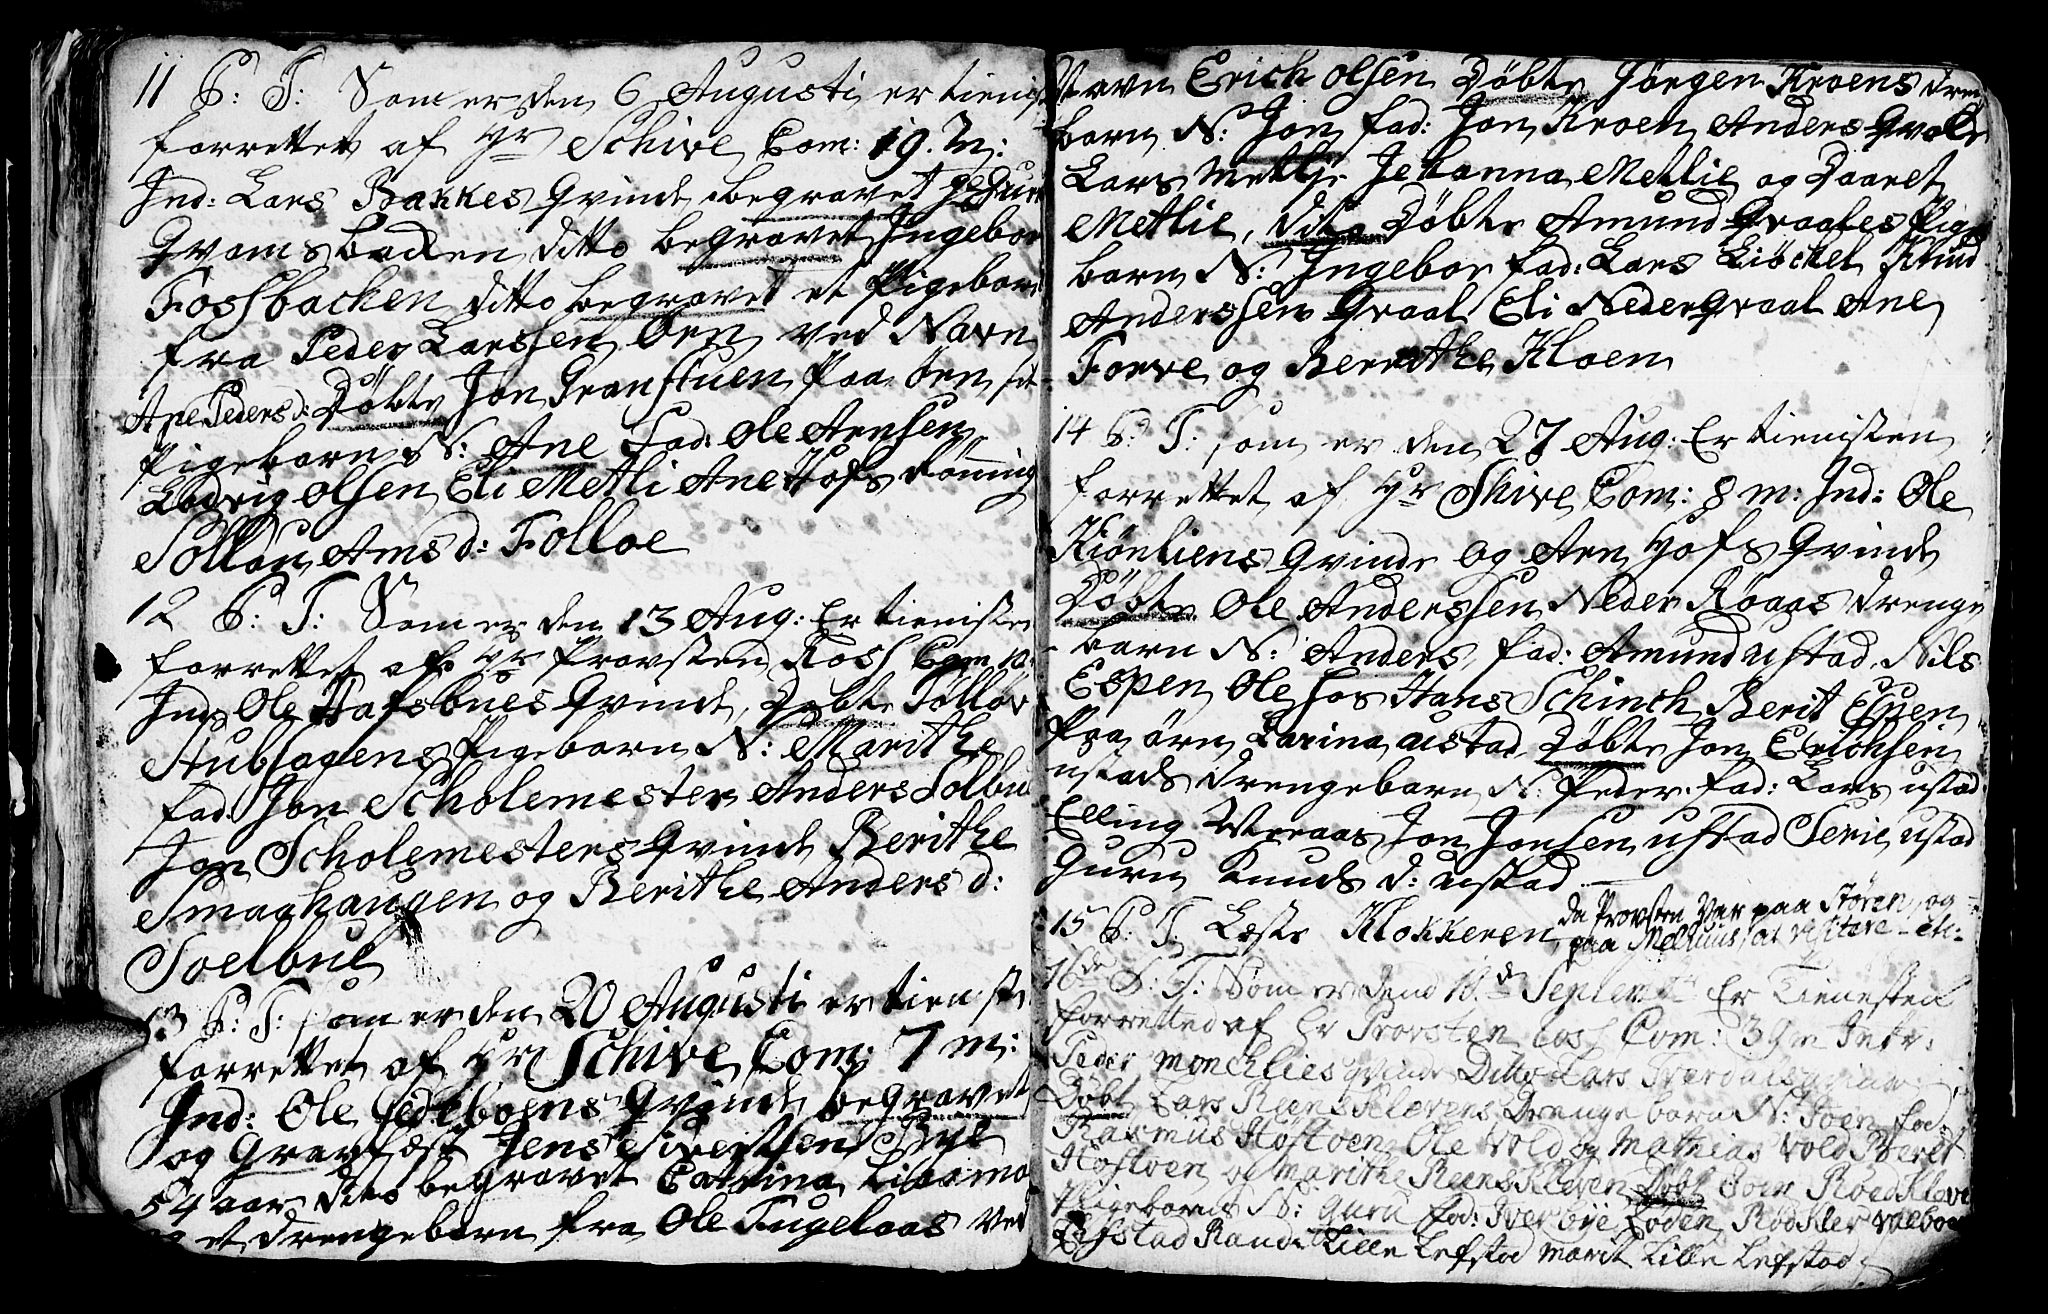 11 P: T: Som er den 6 Augusti er tienist
forrettet af Hr Schive Com: 19. m:
Ind: Lars Bakkes Qvinde, begravet
Qvamsbacken ditto begravet Ingebor
Fossbacken ditto begravet et Pigebarn
fra Peder Larssen Ørn ved Navn
Ane Peders d: Døbte Jon Granstuen Paa Ørn sit
Pigebarn N: Ane fad: Ole Arnsen
Ludvig Olsen Eli Metli Ane Hofs
Arns d: Folloe
12 P: T: Som er den 13 Aug: Er tienisten
forrettet af Hr Provsten Ross Com 10:
Ind: Ole Hafsbues Qvinde, Døbte Tolløv
Stubhagens Pigebarn N: Marithe
fad: Jon Scholemester Anders Solbu
Jon Scholemesters Qvinde Berithe
Smaghaugen og Berithe Anders d:
Soelbue
13 P: T: som er den 20 Augusti er tienist
forrettet af Hr Schive Com: 7 m:
Ind: Ole Gedeboens Qvinde begravet
og Gravfæst Jens Sivertsen Bye
54 aar dito begravet Catrina Liboemo
og et drengebarn fra Ole Fugelaas ved
Navn Erich Olsen Døbte Jørgen Kroens dren
barn N: Jon fad: Jon Kroen Anders Qvale
Lars Metlie Johanna Metlie og Daaret
Metlie, dito Døbte Amund Graafes Pige
barn N: Ingebor fad: Lars Liøckel Knud
Anderssen Graal Eli Neder Graal Ane
Forve og Berrithe Kloen
14 P: T: som er den 27 Aug: Er tienisten
forrettet af Hr Skive Com: 8 m: Ind: Ole
Kiønliens Qvinde og Arn Hofs Qvinde
Døbte Ole Anderssen Neder Røaas drenge
barn N: Anders, fad: Amund ustad, Nils
Espen Ole hos Hans Schinch Berit Espen
Paa Ørn Karina ustad Døbte Jon Erichsen
ustads drengebarn N: Peder fad: Lars ustad
Elling Vieraas Jon Jonsen ustad Seric ustad
Guru Knuds d: ustad
15 P: T. Læste Klokkeren da Provsten Var paa Støren, og
paa Melhuus at visitere
16de P: T: Som er dend 10de Septemb: Er Tienesten
forretted af Hr Provsten Ross Com: 39 m Intr:
Peder Moncklies qvinde Ditto Lars qvinde
Døbt Lars Reenskløvens Drengebarn N: Joen fad:
Rasmus Høstven Ole Vold og Mathias Vold Beret
Høstven og Marithe Reenskleven Døbt Joen Rødkløv
Pigebarn N: Guru fad: Iver bye Loden Rødkler Valboe
Lefstad Randi Lille Lefstad Marit Lille Lefstad